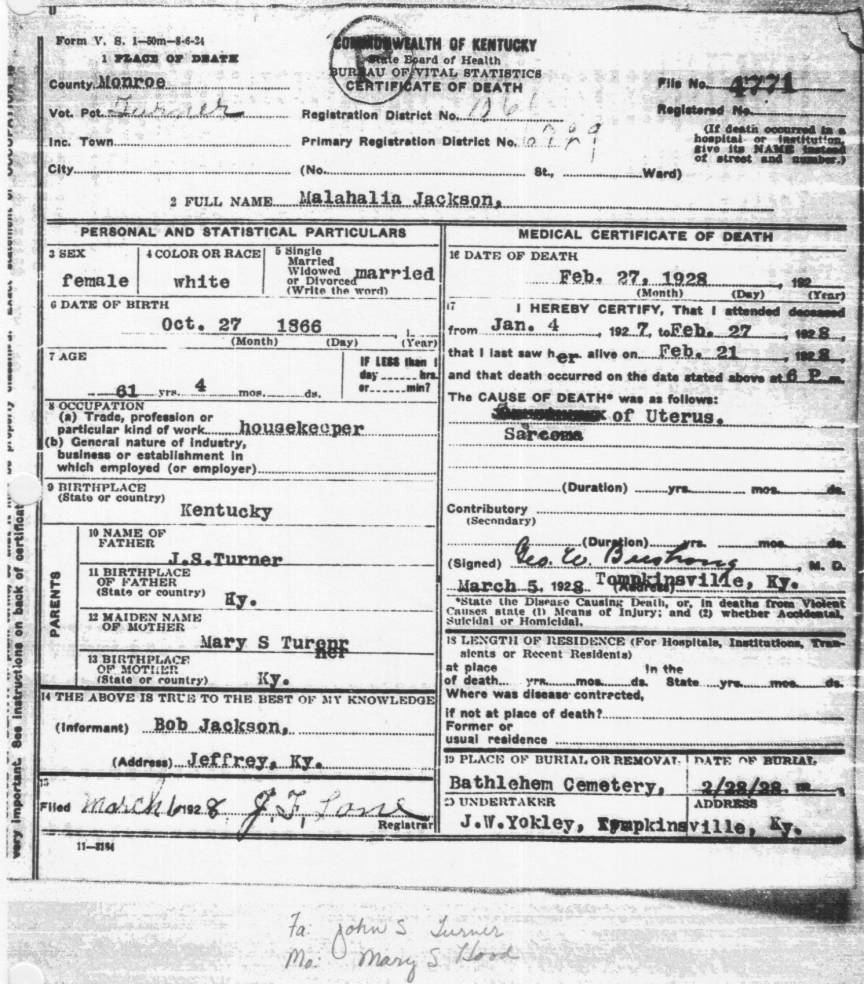 Form V. S. 1—50m—8-6-24
1 PLACE OF DEATH
COMMONWEALTH OF KENTUCKY
State Board of Health
BUREAU OF VITAL STATISTICS
CERTIFICATE OF DEATH
County Monroe
File No. 4771
Vot. Pct. Turner
Registration District No.
Registered No.
Inc. Town
Primary Registration District No.
(If death occurred in a
hospital or institution,
give its NAME instead
of street and number.)
City (No. St., Ward)
2 FULL NAME Malahalia Jackson,
PERSONAL AND STATISTICAL PARTICULARS
3 SEX
female
4 COLOR OR RACE
white
5 Single
Married
Widowed
or Divorced
(Write the word)
married
6 DATE OF BIRTH
Oct. 27 1866 , 1
(Month) (Day) (Year)
7 AGE
61 yrs. 4 mos. ds.
IF LESS than 1
day hrs.
or min?
8 OCCUPATION
(a) Trade, profession or
particular kind of work housekeeper
(b) General nature of industry,
business or establishment in
which employed (or employer)
9 BIRTHPLACE
(State or country)
Kentucky
PARENTS
10 NAME OF
FATHER
J.S.Turner
11 BIRTHPLACE
OF FATHER
(State or country)
Ky.
12 MAIDEN NAME
OF MOTHER
Mary S Turenr
ner
13 BIRTHPLACE
OF MOTHER
(State or country)
Ky.
14 THE ABOVE IS TRUE TO THE BEST OF MY KNOWLEDGE
(Informant) Bob Jackson,
(Address) Jeffrey, Ky.
15
Filed March 6 1928. J. F. Lane
Registrar
11—3184
MEDICAL CERTIFICATE OF DEATH
16 DATE OF DEATH
Feb. 27, 1928 , 192
(Month) (Day) (Year)
17 I HEREBY CERTIFY, That I attended deceased
from Jan. 4 , 1927, to Feb. 27 , 1928,
that I last saw her alive on Feb. 21 , 1928,
and that death occurred on the date stated above at 6 P m.
The CAUSE OF DEATH* was as follows:
of Uterus.
Sarcoma
(Duration) yrs. mos. ds.
Contributory
(Secondary)
(Duration) yrs. mos. ds.
(Signed) Geo. W. Bushong , M. D.
March 5, 1928 Tompkinsville, Ky.
(Address)
*State the Disease Causing Death, or, in deaths from Violent
Causes state (1) Means of Injury; and (2) whether Accidental,
Suicidal or Homicidal.
18 LENGTH OF RESIDENCE (For Hospitals, Institutions, Tran-
sients or Recent Residents)
at place In the
of death yrs. mos. ds. State yrs. mos. ds.
Where was disease contracted,
if not at place of death?
Former or
usual residence
19 PLACE OF BURIAL OR REMOVAL
Bathlehem Cemetery,
DATE OF BURIAL
2/28/28. m ,
20 UNDERTAKER
J.W.Yokley, Tompkinsville, Ky.
ADDRESS
very important. See instructions on back of certificat
Fa: John S Turner
Mo: Mary S Hood